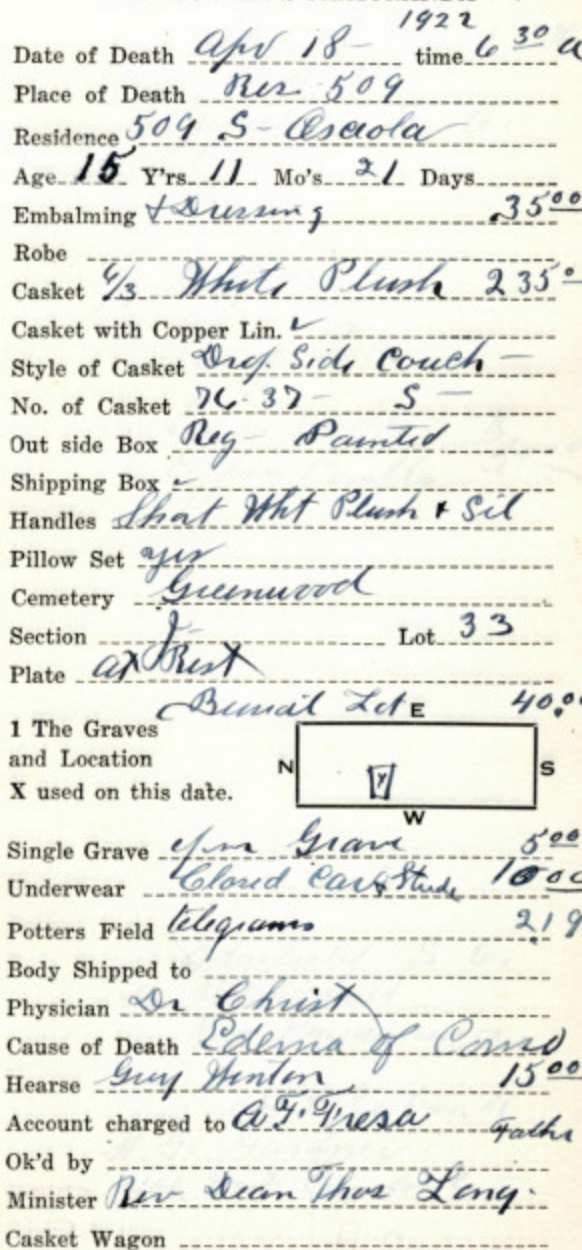 1922
Date of Death Apr 18- time 6 30 a
Place of Death Res 509
Residence 509 S- Osceola
Age 15 Y'rs 11 Mo's 21 Days
Embalming & Dressing 35 00
Robe
Casket 6/3 White Plush 235 0
Casket with Copper Lin. ✓
Style of Casket Drop Side Couch -
No. of Casket 76-37- S -
Out side Box Reg- Painted
Shipping Box ✓
Handles Short Wht Plush & Sil
Pillow Set yes
Cemetery Greenwood
Section J- Lot 33
Plate At Rest
Burial Lot 40.0
E
1 The Graves
and Location
X used on this date.
N S
W
Single Grave Grave 5 00
Underwear Closed Car & 10 00
Potters Field telegrams 2.19
Body Shipped to
Physician Dr Christ
Cause of Death Edema of
Hearse Guy 15 00
Account charged to A.F. Fathr
Ok'd by
Minister Rev Dean Thos Long.
Casket Wagon